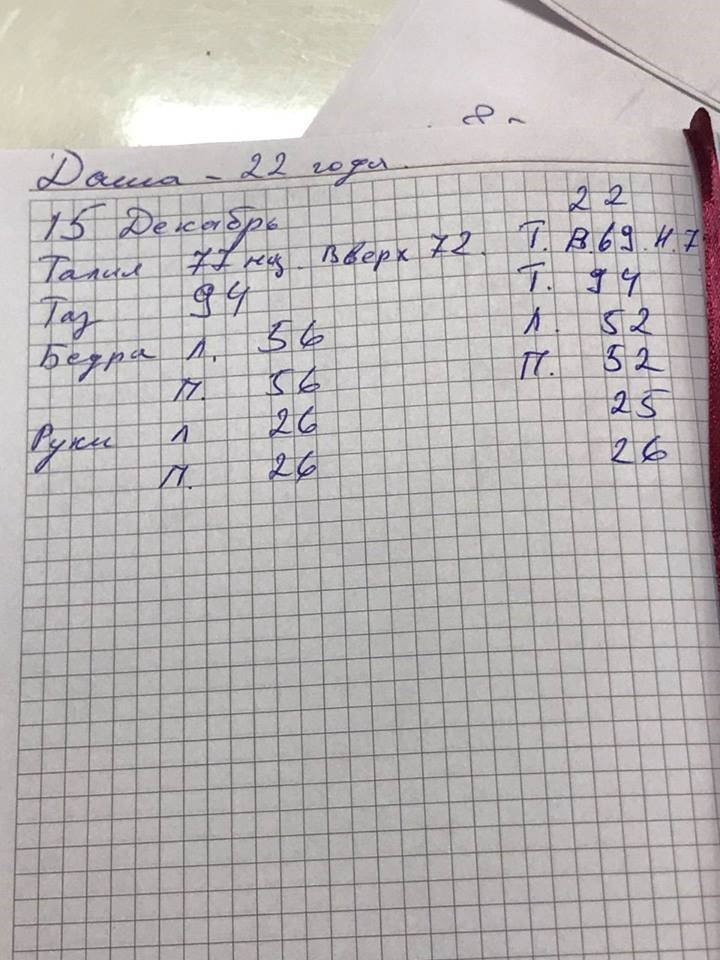 Даша - 22 года.
22
15 Декабрь
Талия 77 нц. Вверх 72. Т. В.69. Н.7
Таз 94 Т. 94
Бедра Л. 56 Л. 52
П. 56 П. 52
Руки Л 26 25
П. 26 26